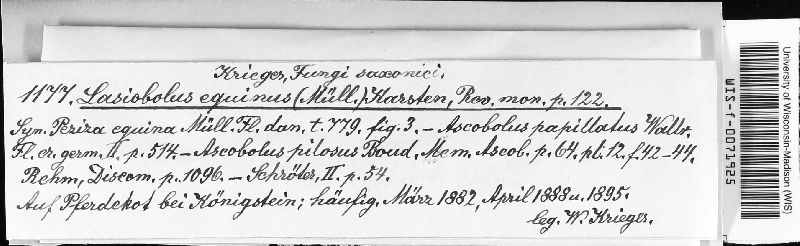 Krieger, Fungi saxonici.
1177. Lasiobolus equinus (Müll.) Karsten, Rev. mon. p. 122.
Syn. Peziza equina Müll. Fl. dan. t. 779. fig. 3. – Ascobolus papillatus Wallr.
Fl. cr. germ. II. p. 514. – Ascobolus pilosus Boud. Mem. Ascob. p. 64. pl. 12. f. 42–44.
Rehm, Discom. p. 1096. – Schröter, II. p. 54.
Auf Pferdekot bei Königstein; häufig, März 1882, April 1888 u. 1895.
leg. W. Krieger.
University of Wisconsin-Madison (WIS)
WIS-f-0071425